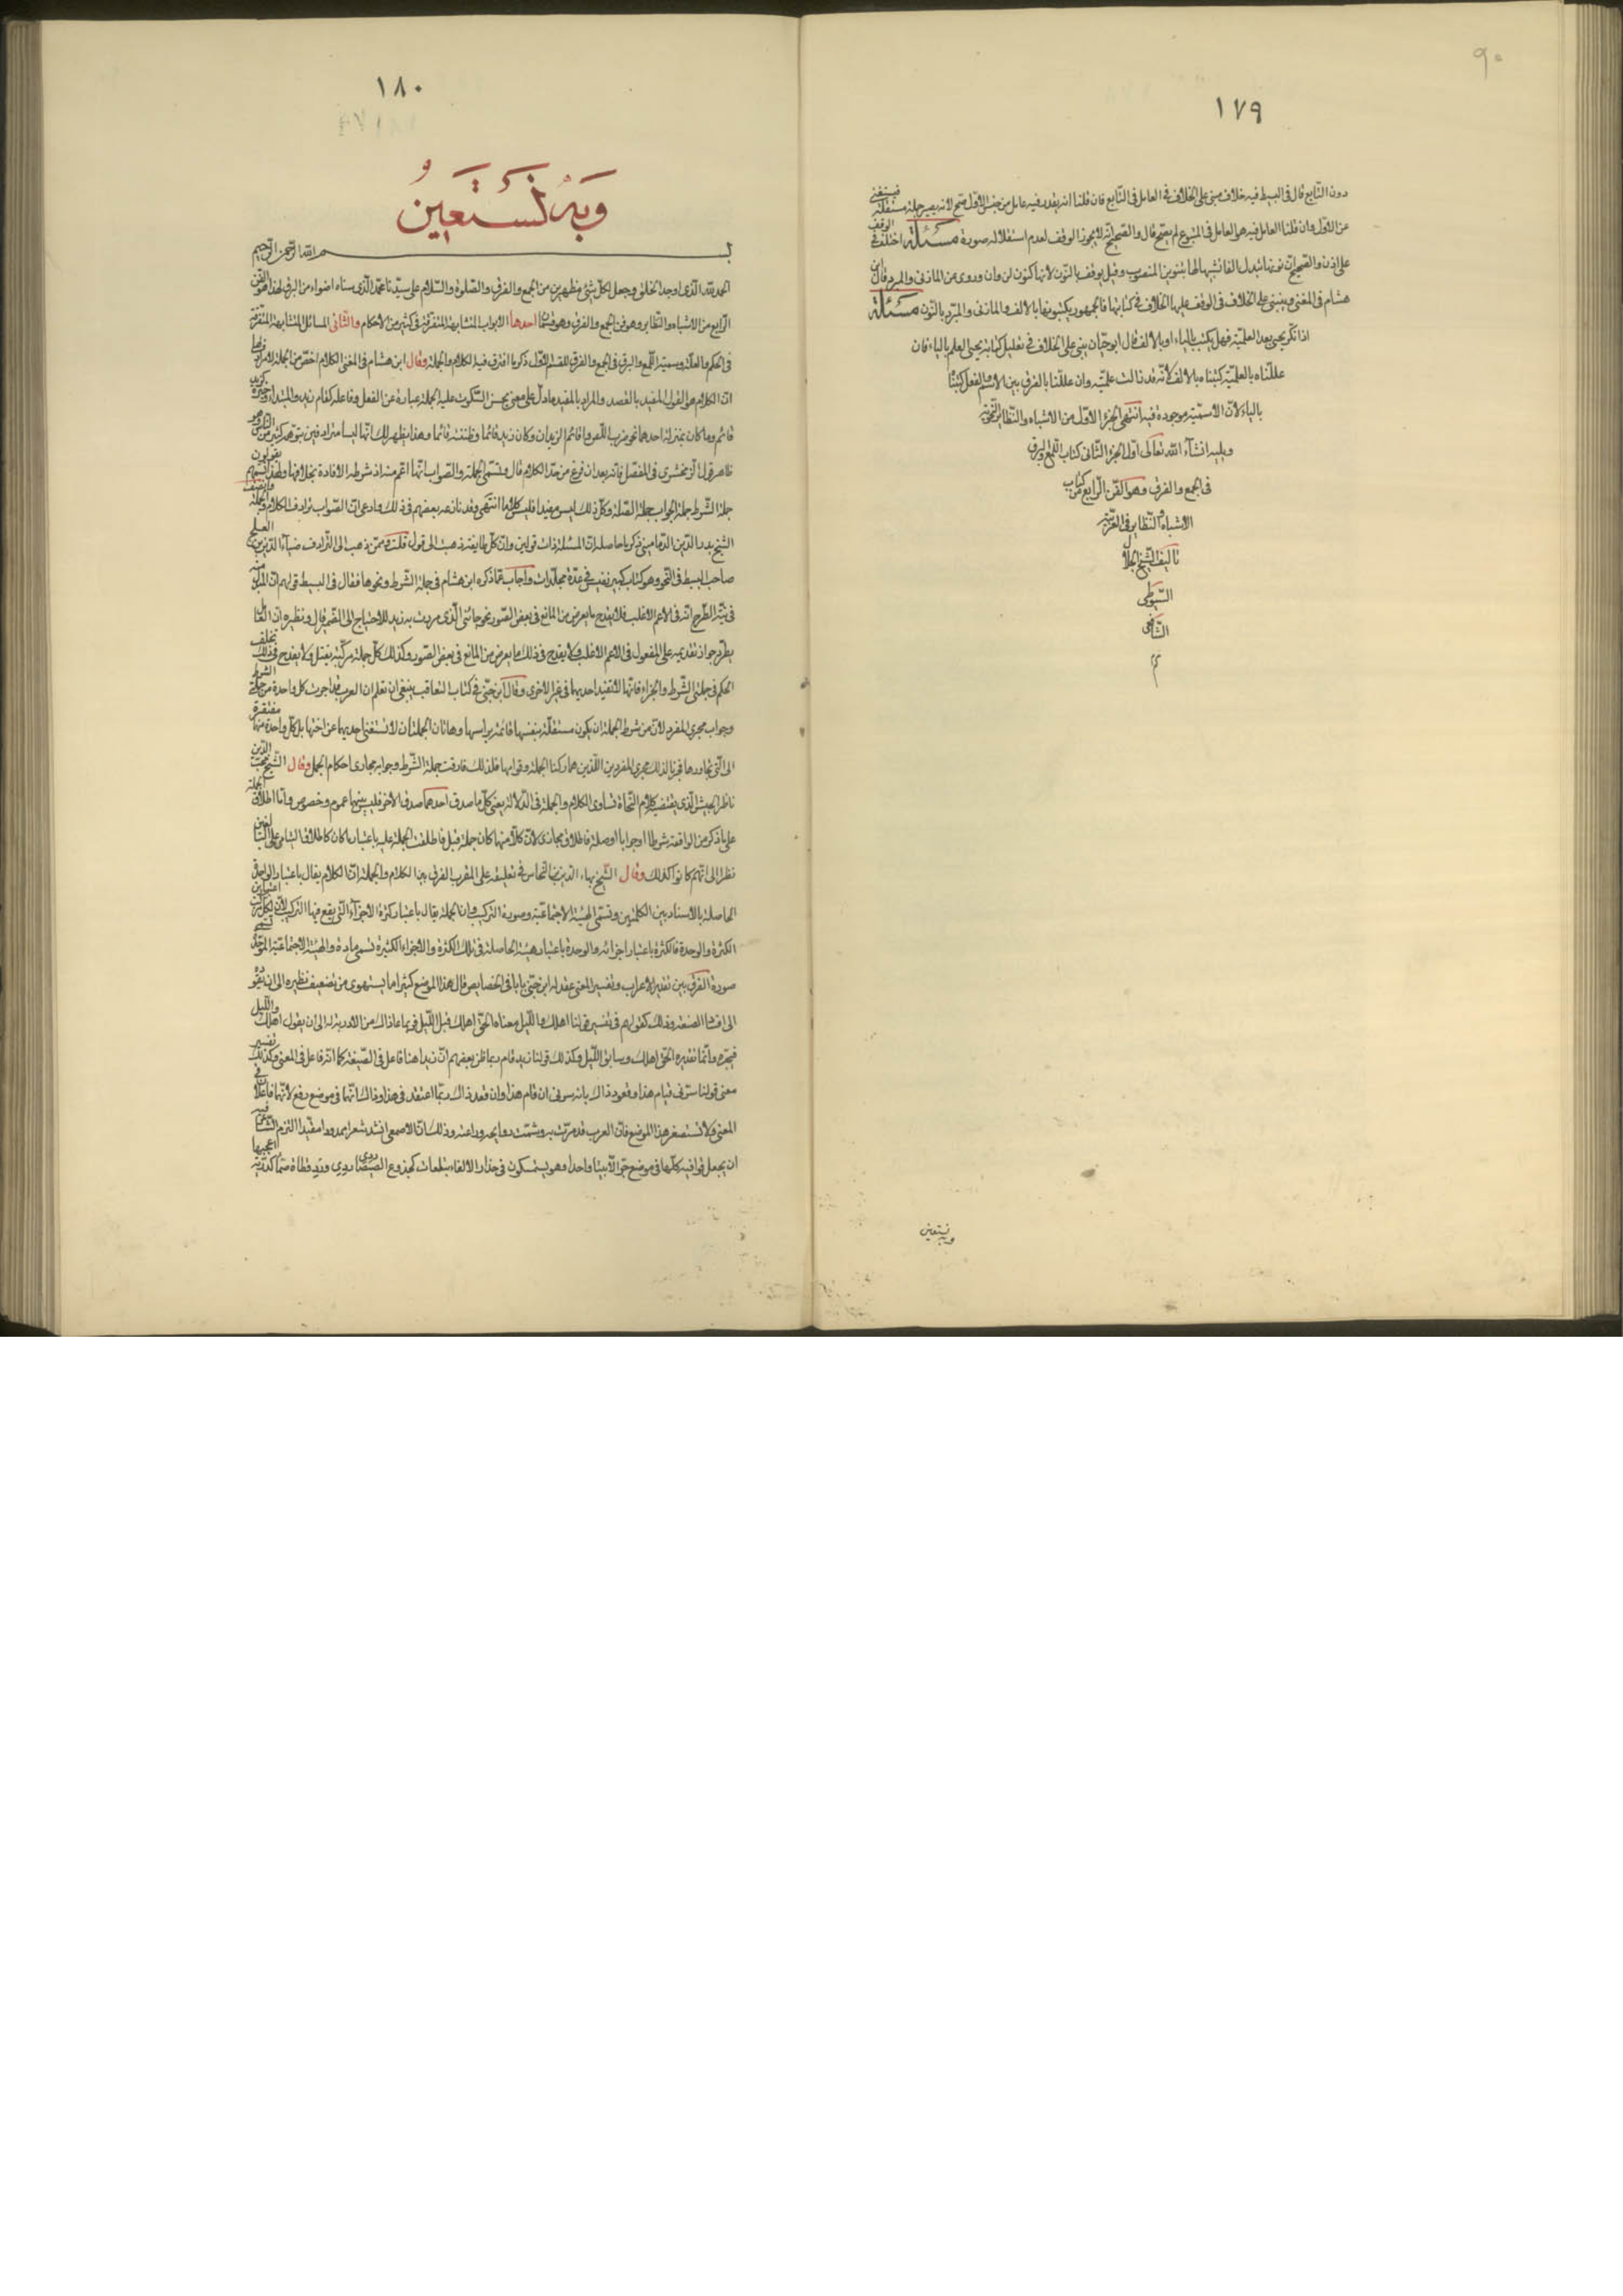 ٩٠
١٧٩
دون التابع قال فى البسيط فيه خلاف مبنى على الخلاف فى العامل فى التابع فان قلنا انه يقدر فيه عامل من جنس الاول صح لانه يصير جملة مستقلة فيستغنى
عن الاول وان قلنا العامل فيه هو العامل فى المتبوع لم يصح قال والصحيح انه لا يجوز الوقف لعدم استقلاله صورة مسئلة اختلف فى الوقف
على اذن والصحيح ان نونها تبدل الفا تشبيها لها بتنوين المنصوب وقيل يوقف بالنون لانها كنون لن وان وروى عن المازنى والمبرد قال ابن
هشام فى المغنى وينبنى على الخلاف فى الوقف عليها الخلاف فى كتابتها فالجمهور يكتبونها بالالف والمازنى والمبرد بالنون مسئلة
اذا نكر يحيى بعد العلمية فهل يكتب بالياء او بالالف قال ابو حيان ينبى على الخلاف فى تعليل كتابة يحيى العلم بالياء فان
عللناه بالعلمية كتبناه بالالف لانه قد زالت علميته وان عللنا بالفرق بين الاسم والفعل كتبناه
بالياء لان الاسمية موجودة فيه انتهى الجزء الاول من الاشباه والنظائر النحوية
ويليه انشاء الله تعالى اول الجزء الثانى كتاب اللمع والبرق
فى الجمع والفرق وهو الفن الرابع من كتاب
الاشباه والنظاير فى العربية
تاليف الشيخ الجلال
السيوطى
الشافعى
م
وبه نستعين
١٨٠
وبه نستعين
بسم الله الرحمن الرحيم
الحمد لله الذى اوجد الخلق وجعل لكل شئ مظهرين من الجمع والفرق والصلوة والسلام على سيدنا محمد الذى سناه اضواء من البرق هذا هو الفن
الرابع من الاشباه والنظاير وهو فن الجمع والفرق وهو قسمان احدها الابواب المتشابهة المتفرقة فى كثير من الاحكام والثانى المسائل المتشابهة المتفرقة
فى الحكم والعلة وسميته اللمع والبرق فى الجمع والفرق القسم الاول ذكر ما افترق فيه الكلام والجملة وقال ابن هشام فى المغنى الكلام اخص من الجملة لا مرادف لها
ان الكلام هو القول المفيد بالقصد والمراد بالمفيد ما دل على معنى يحسن السكوت عليه والجملة عبارة عن الفعل وفاعله كقام زيد والمبتدا وخبره كزيد
قائم وما كان بمنزلة احدهما نحو ضرب اللص واقائم الزيدان وكان زيد قائما وظننته قائما وهذا يظهر لك انهما ليسا مترادفين كما يتوهمه كثير من الناس وهو
ظاهر قول الزمخشرى فى المفصل فانه بعد ان فرغ من حد الكلام قال وتسمى الجملة والصواب انها اعم منه اذ شرطه الافادة بخلافها ولهذا تسمعهم يقولون
جملة الشرط جملة الجواب جملة الصلة وكل ذلك ليس مفيدا فليس كلاما انتهى وقد نازعه بعضهم فى ذلك وادعى ان الصواب ترادف الكلام والجملة وانتصف
الشيخ بدر الدين الدمامينى ذكر ما حاصله ان المسئلة ذات قولين وان كل طايفة ذهبت الى قول قلت وممن ذهب الى الترادف ضياء الدين بن العلج
صاحب البسيط فى النحو وهو كتاب كبير نفيس فى عدة مجلدات واجاب عما ذكره ابن هشام فى جملة الشرط ونحوها فقال فى البسيط قولهم ان المبدل منه
فى نية الطرح انه فى الاعم الاغلب فلا يقدح ما يعرض من المانع فى بعض الصور نحو جاءنى الذى مررت به زيد للاحتياج الى الضمير قال ونظيره ان الفاعل
يطرد جواز تقديمه على المفعول فى الاعم الاغلب ولا يقدح فى ذلك ما يعرض من المانع فى بعض الصور وكذلك كل جملة مركبة يفتل ولا يقدح فى ذلك تخلف
الحكم فى جملتى الشرط والجزاء فانها لا تفيد احديهما فى غير الاخرى وقال ابن جنى فى كتاب التعاقب ينبغى ان تعلم ان العرب قد اجرت كل واحدة من جملتى الشرط
وجواب مجرى المفرد لان من شرط الجملة ان يكون مستقلة بنفسها قائمة براسها وهاتان الجملتان لا تستغنى احديهما عن اختها بل كل واحدة منهما مفتقرة
الى التى تجاورها فجرتا لذلك مجرى المفردين اللذين هما ركنا الجملة وقوامها فلذلك فارقت جملة الشرط وجوابه مجارى احكام الجمل وقال الشيخ محب الدين
ناظر الجيش الذى يقتضيه كلام النحاة تساوى الكلام والجملة فى الدلالة يعنى كل ما صدق احدهما صدق الاخر فليس بينهما عموم وخصوص واما اطلاق الجملة
على ما ذكر من الواقعة شرطا او جوابا او صلة فاطلاق مجازى لان كلا منها كان جملة قبل فاطلقت الجملة عليه باعتبار ما كان كاطلاق اليتامى على البالغين
نظرا الى انهم كانوا كذلك وقال الشيخ بهاء الدين بن النحاس فى تعليقه على المقرب الفرق بين الكلام والجملة ان الكلام يقال باعتبار الواحدة
الحاصلة بالاسناد بين الكلمتين وتسمى الهيئة الاجتماعية وصورة التركيب وان الجملة يقال باعتبار كثرة الاجزاء التى يقع فيها التركيب لان لكل مركب اعتبارين
الكثرة والوحدة فالكثرة باعتبار اجزائه والوحدة باعتبار هيئته الحاصلة فى تلك الكثرة والاجزاء الكثيرة تسمى مادة والهيئة الاجتماعية الموحدة تسمى
صورة الفرق بين تقدير الاعراب وتفسير المعنى عقد له ابن جنى بابا فى الخصايص قال هذا الموضع كثيرا ما يستهوى من تضعف نظيره الى ان يقوده
الى افساد الصنعة وذلك كقولهم فى تفسير قولنا اهلك والليل معناه الحق اهلك قبل الليل فربما دعا ذاك من لا دربة له الى ان يقول اهلك والليل
فيجره وانما تقديره الحق اهلك وسابق الليل وكذلك قولنا زيد قام ربما ظن بعضهم ان زيدا هنا فاعل فى الصيغة كما انه فاعل فى المعنى وكذلك تفسير
معنى قولنا سرنى قيام هذا وقعود ذاك بانه سرنى ان قام هذا وان قعد ذاك ربما اعتقد فى هذا وذاك انهما فى موضع رفع لانهما فاعلان فى
المعنى ولا تستصغر هذا الموضع فان العرب قد مرت به وشمت روايحه وراعته وذلك ان الاصمعى انشد شعرا ممدودا مقيدا التزم الشاعر فيه
ان يجعل قوافيه كلها فى موضع جر الا بيتا واحدا وهو يستمسكون فى حذار الالقاء بتلعات كجذوع الصيصاء ردى ردى ورد قطاة صماء كدرية اعجبها